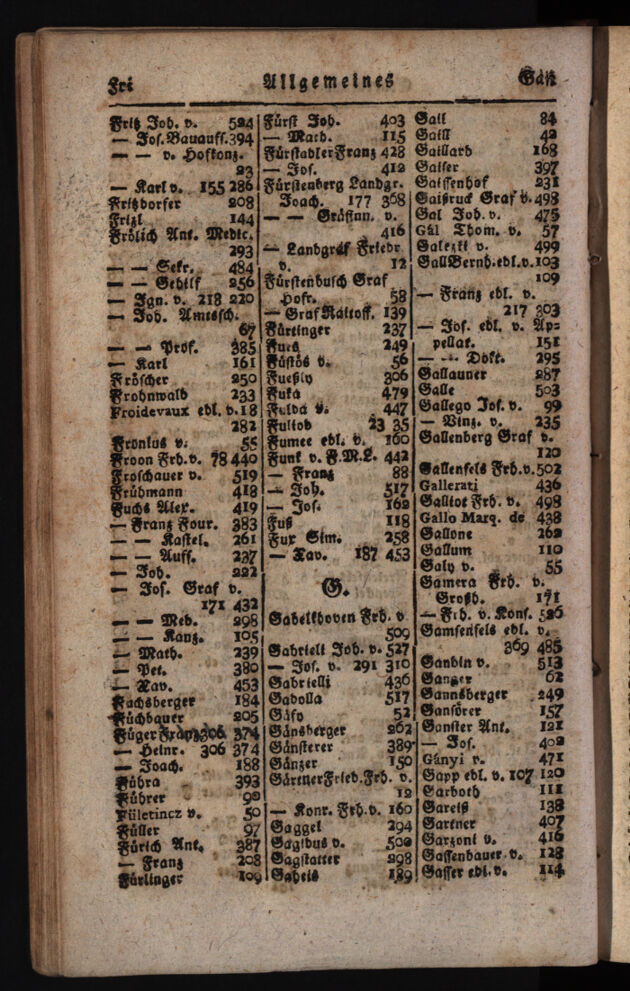 Fri Allgemeines Gäs
Fritz Joh. v. 524
— Jos. Bauauff. 394
— — v. Hofkonz.
23
— Karl v. 155 286
Fritzdorfer 208
Frizl 144
Frölich Ant. Medic.
293
— — Sekr. 484
— — Gehilf 256
— Ign. v. 218 220
— Joh. Amtssch.
67
— — Prof. 385
— Karl 161
Fröscher 250
Frohnwald 233
Froidevaux edl. v. 18
282
Fronius v. 55
Froon Frh. v. 78 440
Froschauer v. 519
Frühmann 418
Fuchs Alex. 419
— Franz Four. 383
— — Kastel. 261
— — Auff. 237
— Joh. 222
— Jos. Graf v.
171 432
— — Med. 298
— — Kanz. 105
— Math. 239
— Pet. 380
— Xav. 453
Fuchsberger 184
Füchbauer 205
Füger Franz 306 374
— Heinr. 306 374
— Joach. 188
Führa 393
Führer 90
Fületincz v. 50
Füller 97
Fürich Ant. 387
— Franz 208
Fürlinger 109
Fürst Joh. 403
— Math. 115
Fürstadler Franz 428
— Jos. 412
Fürstenberg Landgr.
Joach. 177 368
— — Gräfinn. v.
416
— Landgraf Friedr.
v. 12
Fürstenbusch Graf
Hofr. 58
— Graf Rattoff. 139
Fürtinger 237
Fues 249
Füstös v. 56
Fueßly 306
Fuka 479
Fulda v. 447
Fullob 23 35
Fumee edl. v. 160
Funk v. F.M.L. 442
— Franz 88
— Joh. 517
— Jos. 162
Fuß 118
Fux Sim. 258
— Xav. 187 453
G.
Gabelkhoven Frh. v
509
Gabrieli Joh. v. 527
— Jos. v. 291 310
Gabrielli 436
Gadolla 517
Gäfy 52
Gänsberger 262
Gänsterer 389
Gänzer 150
Gärtner Fried. Frh. v.
12
— Konr. Frh. v. 160
Gaggel 294
Gagidus v. 500
Gagstatter 298
Gaheis 189
Gail 84
Gaill 42
Gaillard 168
Gaiser 397
Gaissenhof 231
Gaißruck Graf v. 498
Gal Joh. v. 475
Gál Thom. v. 57
Galezki v. 499
Gall Bernh. edl. v. 103
109
— Franz edl. v.
217 303
— Jos. edl. v. Ap-
pellat. 151
— — Dokt. 295
Gallauner 287
Galle 503
Gallego Jos. v. 99
— Vinz. v. 235
Gallenberg Graf v.
120
Gallenfels Frh. v. 502
Gallerati 436
Galliot Frh. v. 498
Gallo Marq. de 438
Gallone 262
Gallum 110
Galy v. 55
Gamera Frh. v.
Großh. 171
— Frh. v. Konf. 526
Gamsenfels edl. v.
369 485
Gandin v. 513
Ganger 62
Gannsberger 249
Gansörer 157
Ganster Ant. 121
— Jos. 402
Gányi v. 471
Gapp edl. v. 107 120
Garboth 111
Gareiß 138
Gartner 407
Garzoni v. 416
Gassenbauer v. 128
Gasser edl. v. 114